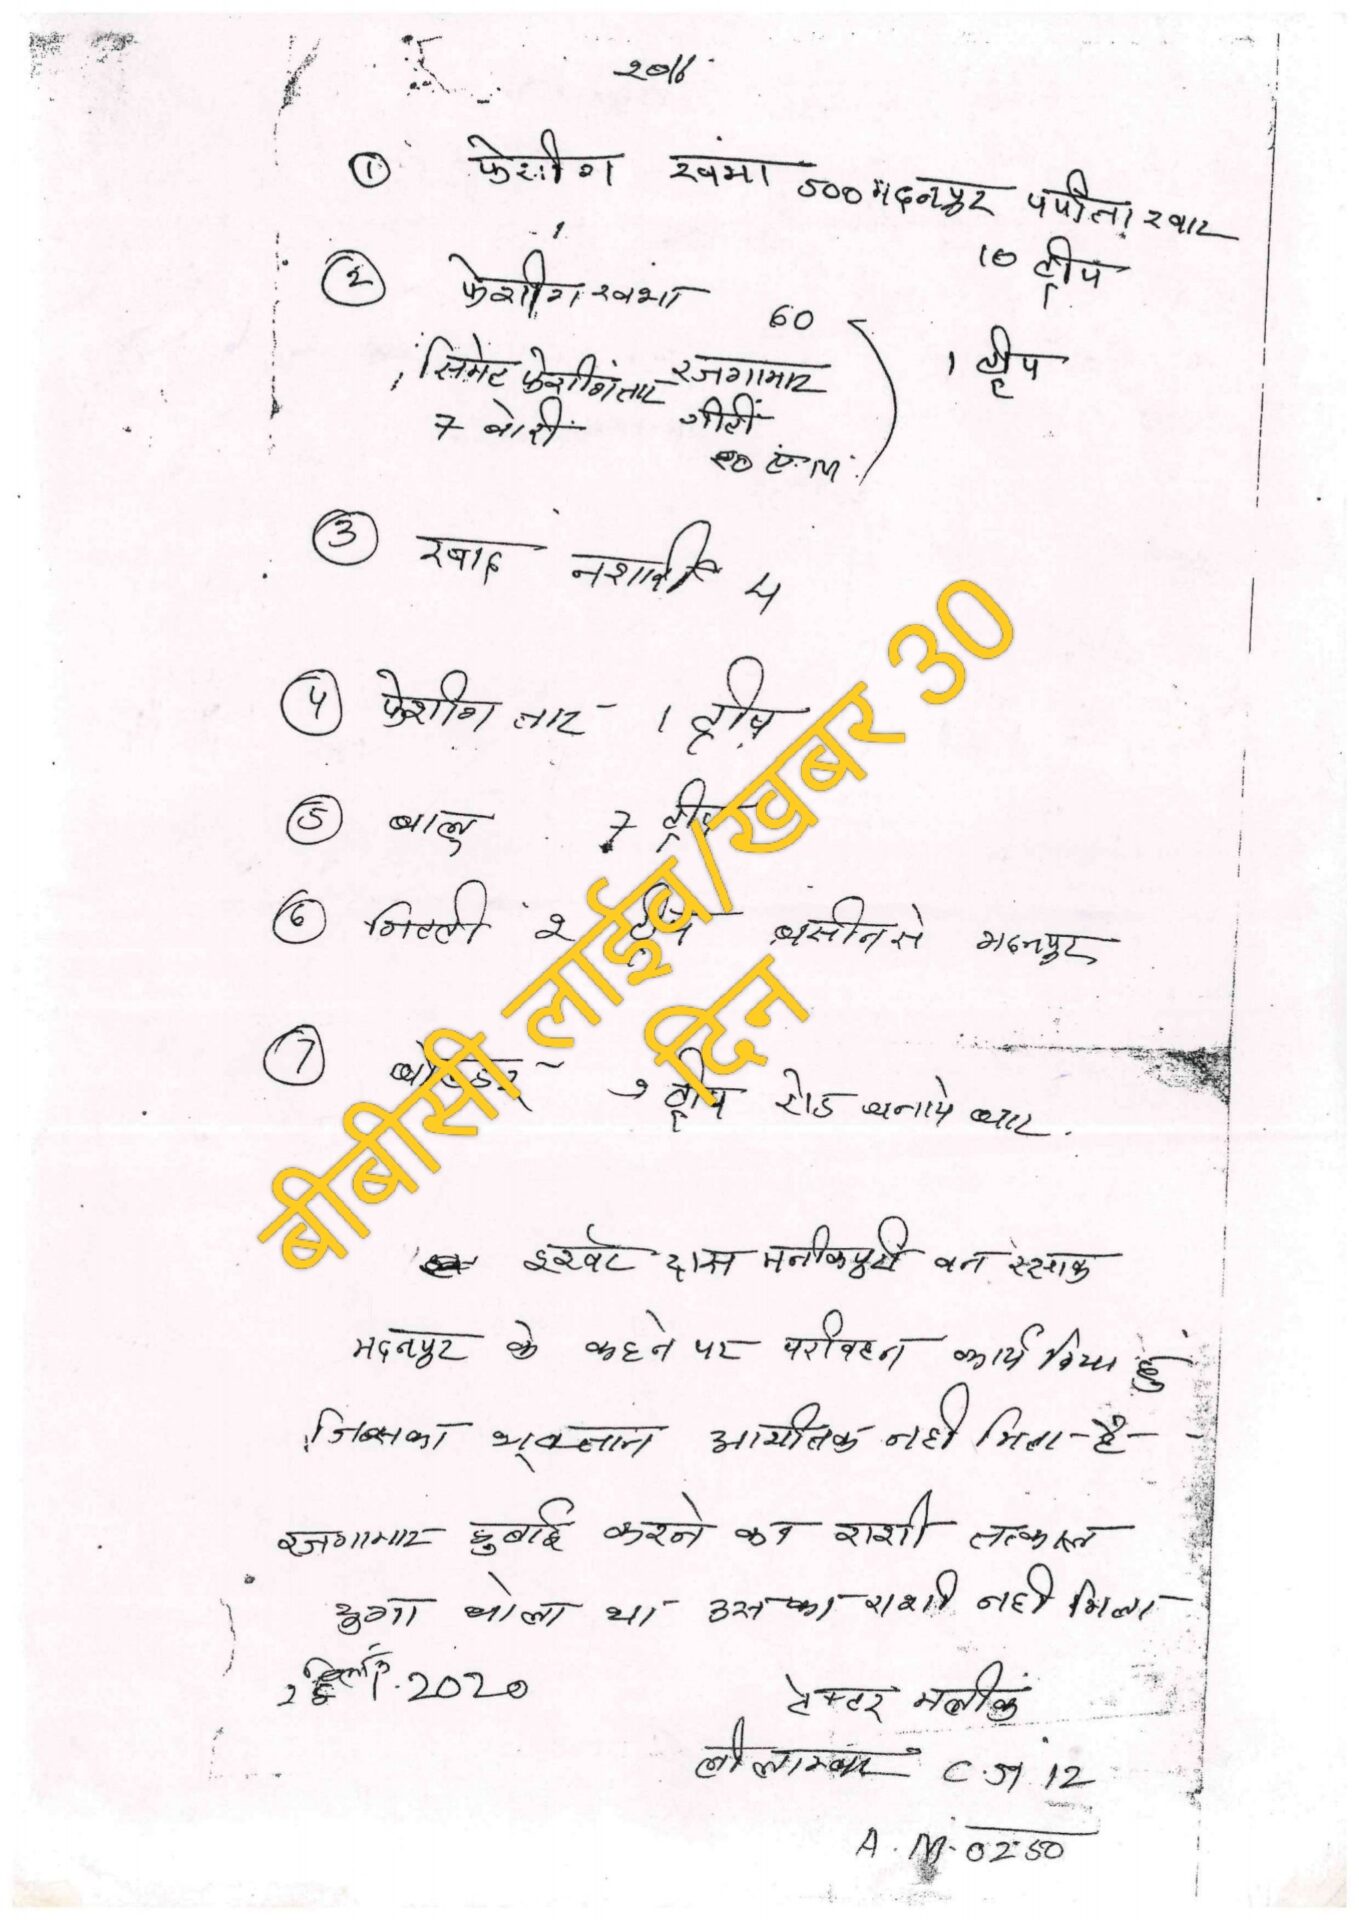 ① फेशींग खंभा 500 मदनपुर पपीता खार
10 ट्रीप
② फेशींग खंभा 60
1 ट्रीप
सिमेंट फेशींगतार रजगामार
7 बोरी गीटी
③ खाद नर्शरी 4
④ फेशींग तार - 1 ट्रीप
⑤ बालु 7 ट्रीप
⑥ गिटटी 2 ट्रीप बसीन से मदनपुर
⑦ ट्रीप रोड बनाये
दास मनीकपुरी वन रक्षक
मदनपुर के कहने पर परीवहन कार्य किया हुं
जिसका भुक्तान अभीतक नही मिला है
रजगामार ढुलाई करने का राशी तत्काल
दुगा बोला था उसका राशी नही मिला
2020
टेक्टर मलीक
लीलाम्बर C.G 12
A.M. 0250
बीबीसी लाईव/खबर 30
दिन